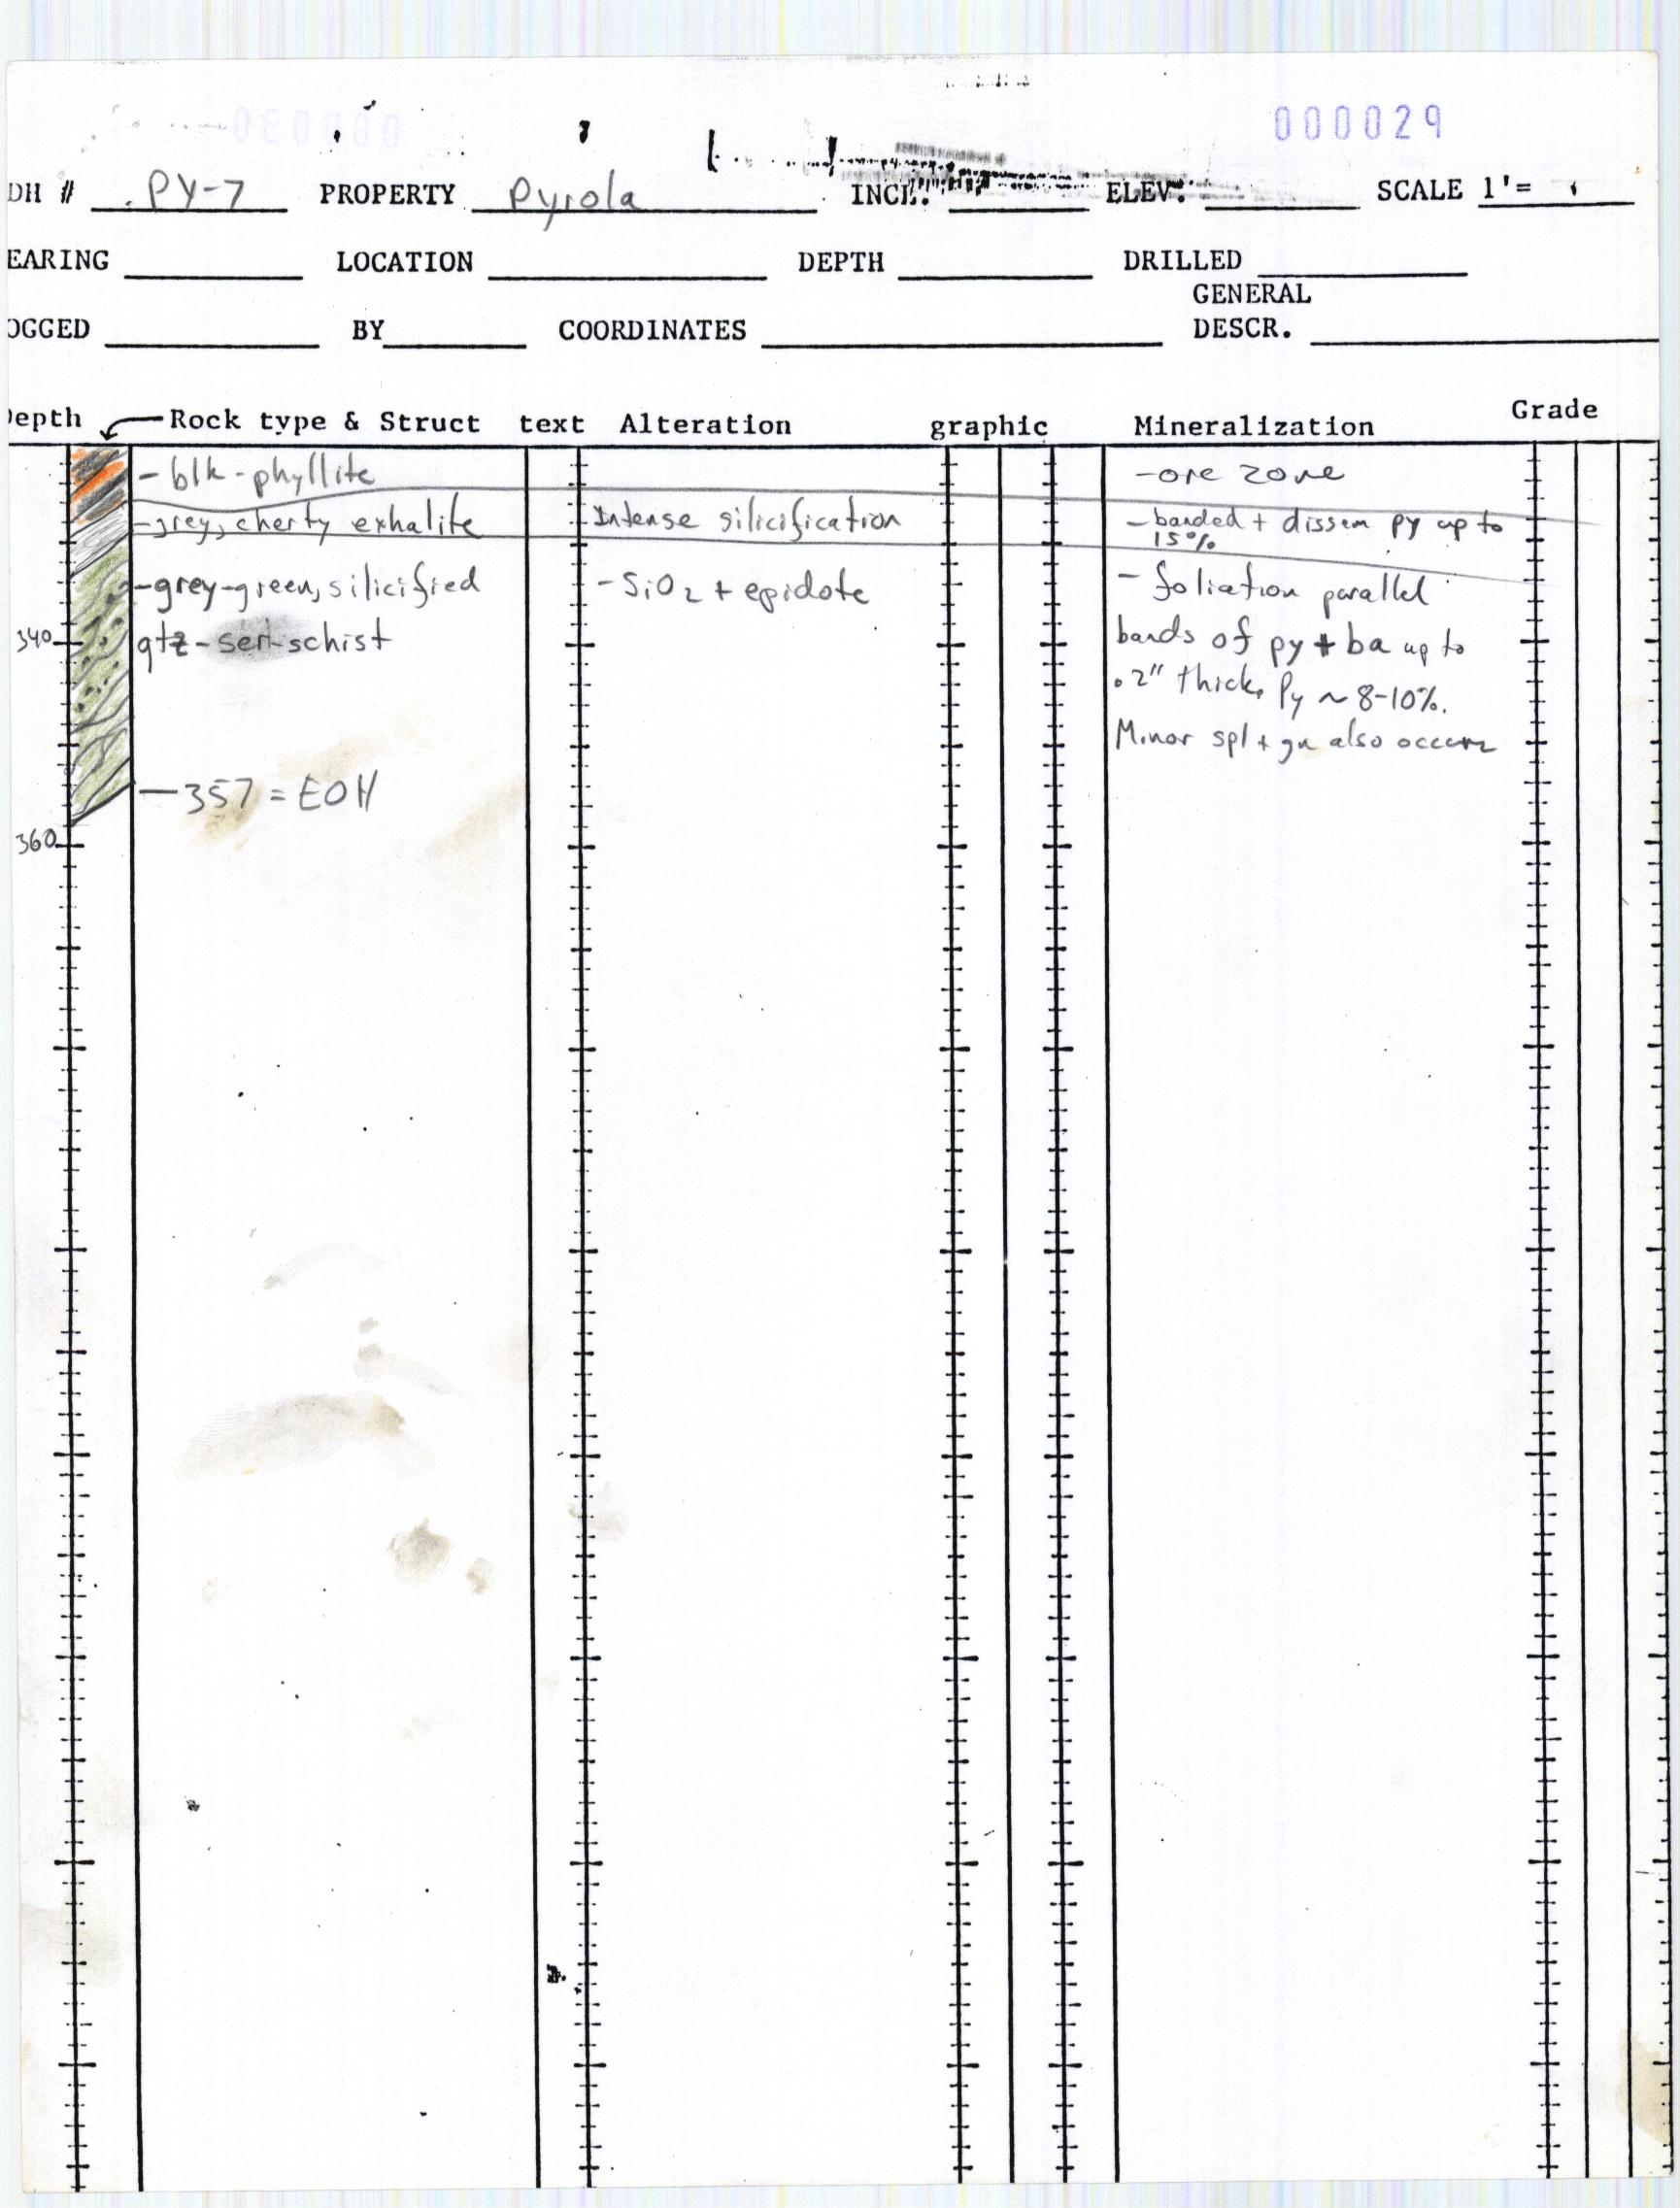 000029
DH # PY-7 PROPERTY Pyrola INCL. ELEV. SCALE 1'= '
EARING LOCATION DEPTH DRILLED
GENERAL
OGGED BY COORDINATES DESCR.
Depth Rock type & Struct text Alteration graphic Mineralization Grade
- blk-phyllite -ore zone
-grey, cherty exhalite Intense silicification - banded + dissem py up to
15%
-grey-green, silicified - SiO2 + epidote - foliation parallel
340 qtz-ser-schist bands of py + ba up to
.2" thick. Py ~ 8-10%.
Minor spl + gn also occurs
-357 = EOH
360